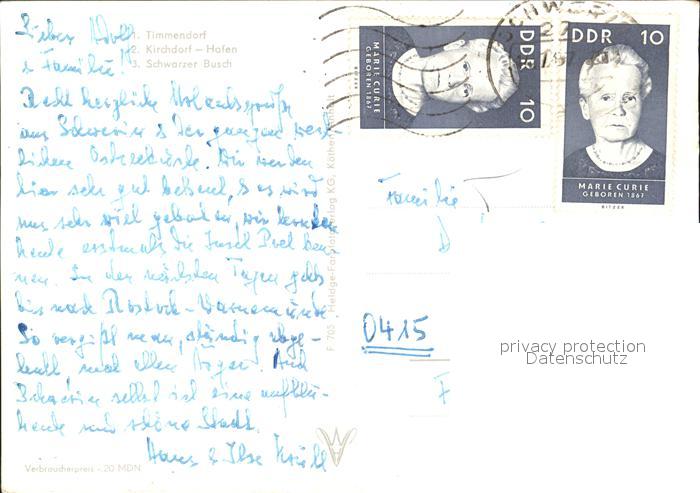 1. Timmendorf
2. Kirchdorf – Hafen
3. Schwarzer Busch
Lieber Adolf
& Familie!
Recht herzliche Urlaubsgrüße
aus Schwerin & der ganzen west-
lichen Ostseeküste. Wir werden
hier sehr gut betreut, & es wird
uns sehr viel geboten, wir lernten
heute erstmals die Insel Poel ken-
nen. In den nächsten Tagen gehts
bis nach Rostock-Warnemünde.
So vergißt man, ständig abge-
lenkt, mal allen Ärger. Auch
Schwerin selbst ist eine aufblü-
hende und schöne Stadt.
Hans & Ilse
Verbraucherpreis -.20 MDN
F 705
Verlag KG, Köthen
MARIE CURIE
GEBOREN 1867
DDR 10
BITZER
DDR 10
MARIE CURIE
GEBOREN 1867
BITZER
SCHWERIN
Familie
0415
privacy protection
Datenschutz